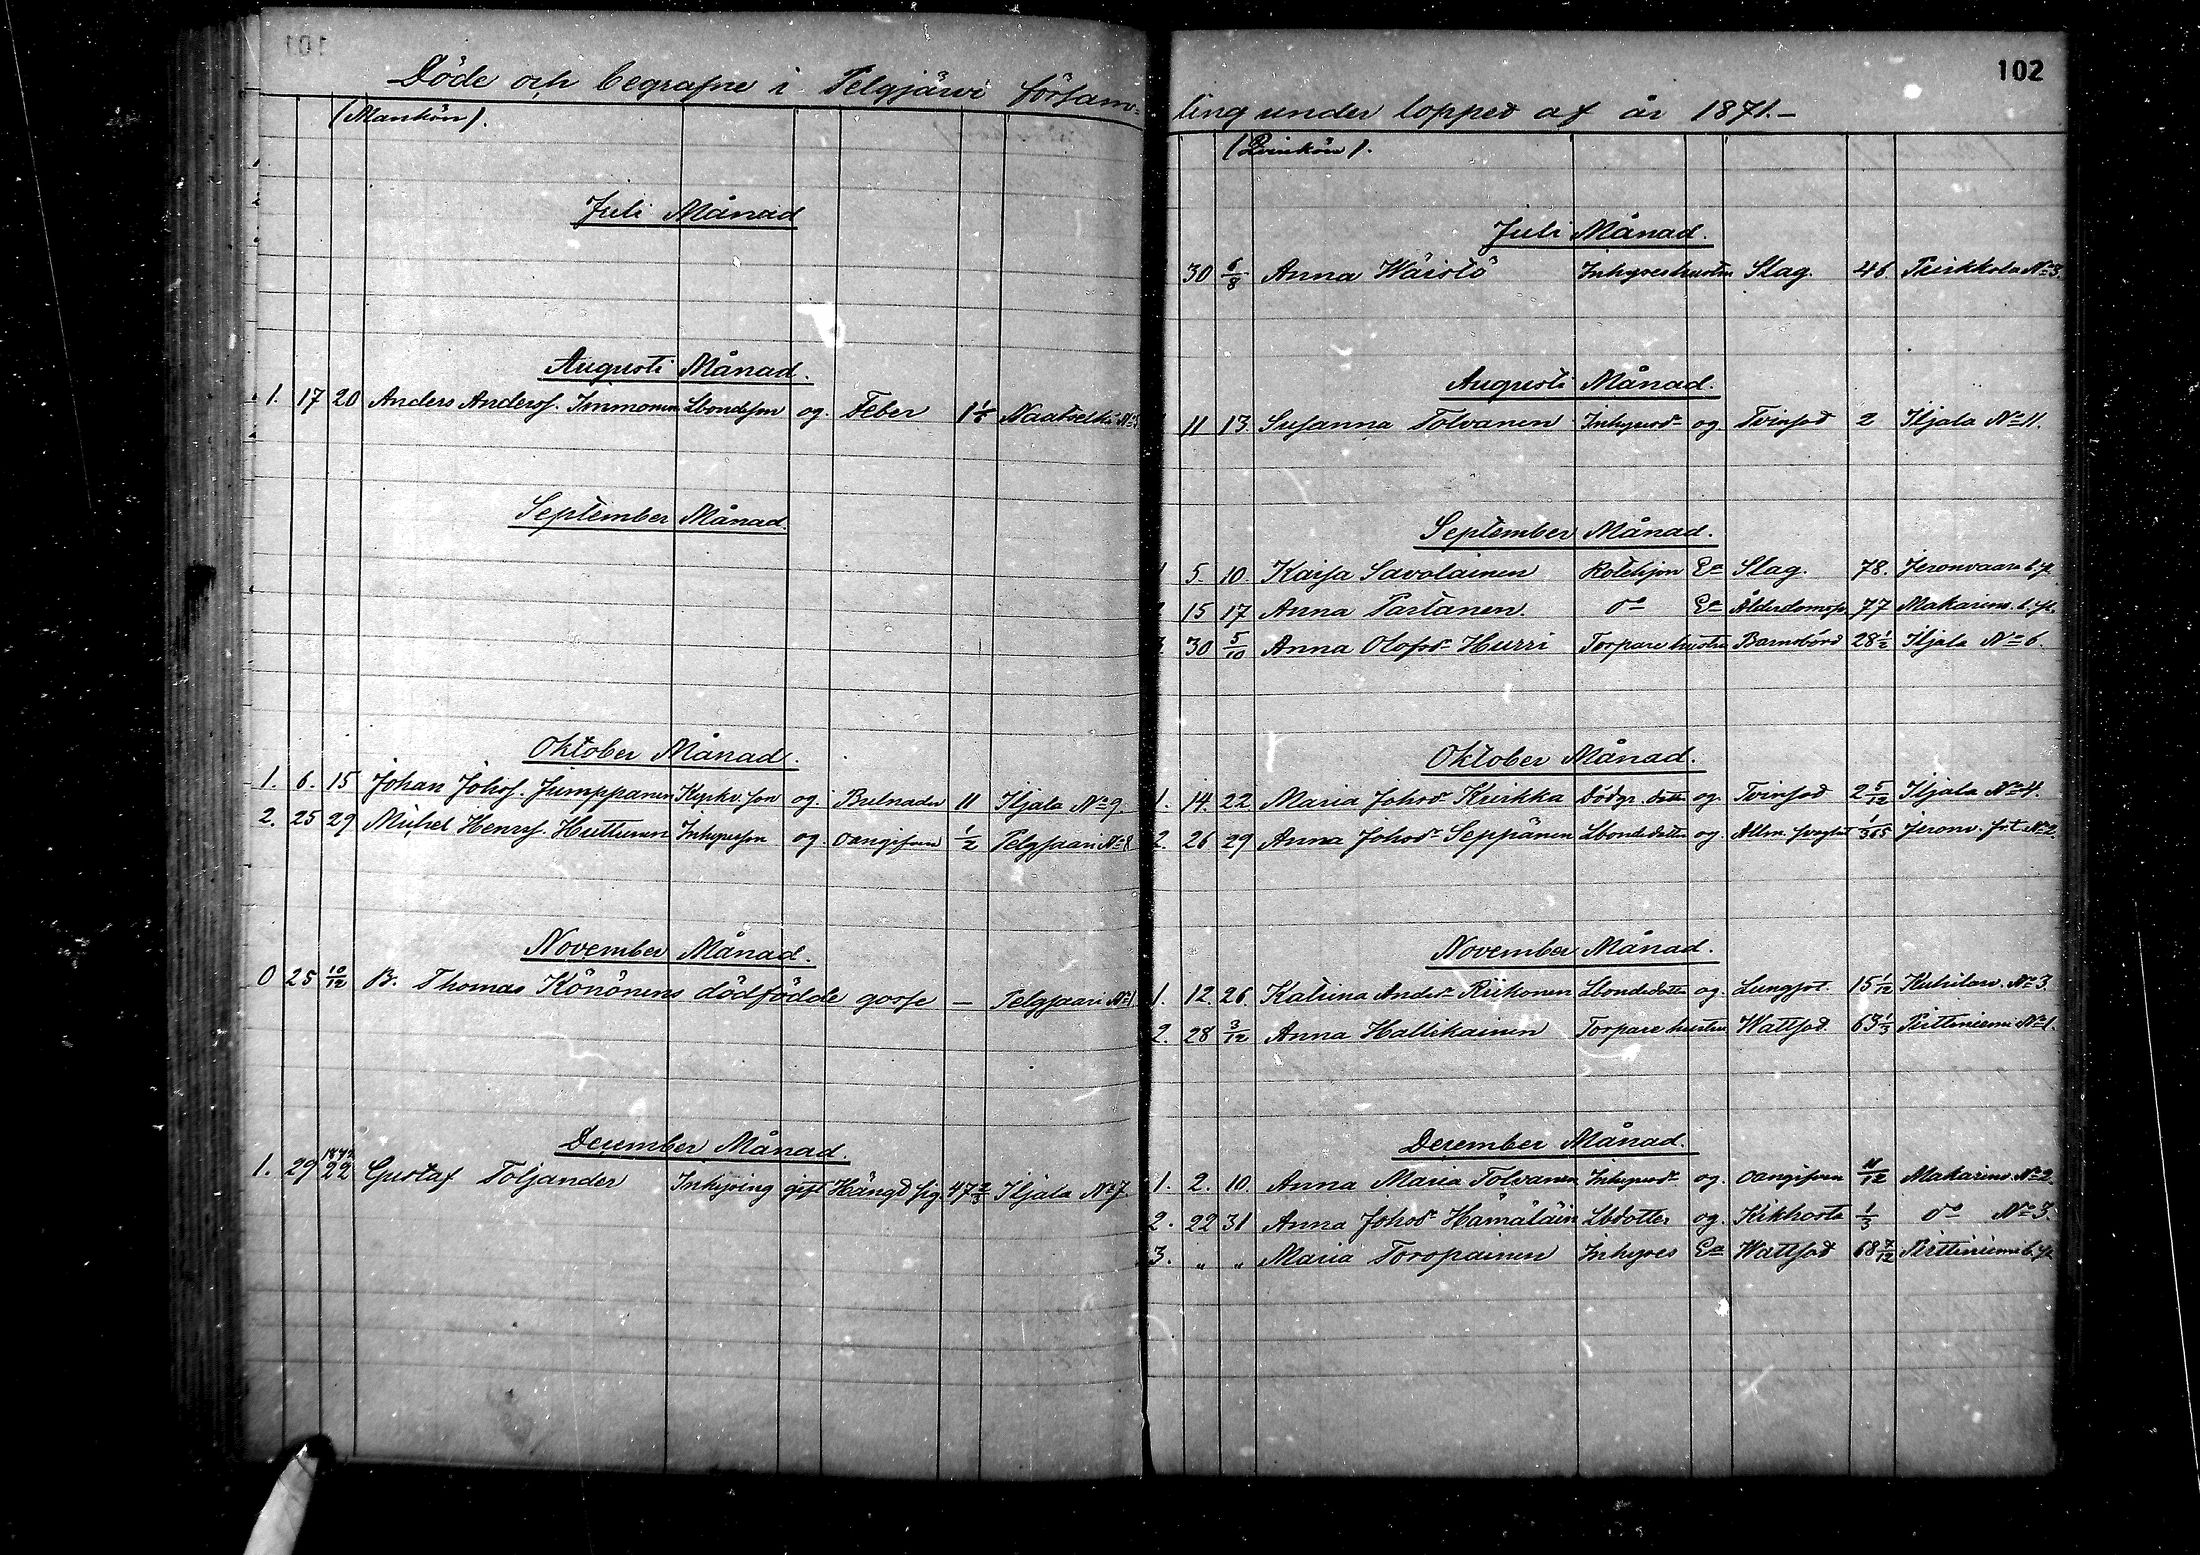 Döde och begrafne i Pelgjärvi försam-
(Mankön).
Juli Månad
Augusti Månad.
1. 17 20 Anders Anderss. Immonen Lbondeson og. Feber 1 1/6 Naatselkä No 3
September Månad.
Oktober Månad.
1. 6. 15 Johan Johss. Jumppanen Kyrkv. son og. Bulnader 11 Iljala No 9.
2. 25 29 Mickel Henrss. Huttunen Inhyseson og. oangifven 1/2 Pelgjaari No 8
November Månad.
0 25 10/12 B. Thomas Könönens dödfödde gosse — Pelgjaari No 1
December Månad.
1. 29 1872 22 Gustaf Toljander Inhysing gift Hängd sig 47 2/3 Iljala No 7.
102
ling under loppet af år 1871.-
(Qvinkön).
Juli Månad.
30 6/8 Anna Wäistö Inhyseshustru Slag. 46. No 3
Augusti Månad.
11 13. Susanna Tolvanen Inhysesd- og Tvinsod 2 Iljala No 11.
September Månad.
5. 10. Kaisa Savolainen Rotehjon Ea Slag. 78. Jeronvaara b. p.
15 17 Anna Partanen. do Ea Ålderdomsv 77 Makarins. b. p.
30 5/10 Anna Olofsd- Hurri Torpare hustru Barnsbörd 28 1/2 Iljala No 6.
Oktober Månad.
1. 14. 22 Maria Johsd- Kurikka dotter og. Tvinsod 2 5/12 Iljala No 4.
2. 26 29 Anna Johsd- Seppänen Lbondedotter og. Allm. svaghet 1/365 Jeronv. No 2
November Månad.
1. 12. 26. Katrina Andersd- Riikonen Lbondedotter og. Lungsot. 15 1/12 Kuhilasv. No 3.
2. 28 3/12 Anna Hallikainen Torpare hustru Wattsot. 63 1/3 Pirttiniemi No 1.
December Månad.
1. 2. 10. Anna Maria Tolvanen Inhysesd- og. oangifven 11/12 Makarins No 2
2. 22 31 Anna Johsd- Hämäläin Lbdotter og. Kikhosta 1/3 do No 3.
3. " " Maria Toropainen Inhyses Ea Wattsot 68 7/12 Pirttiniemi b. p.